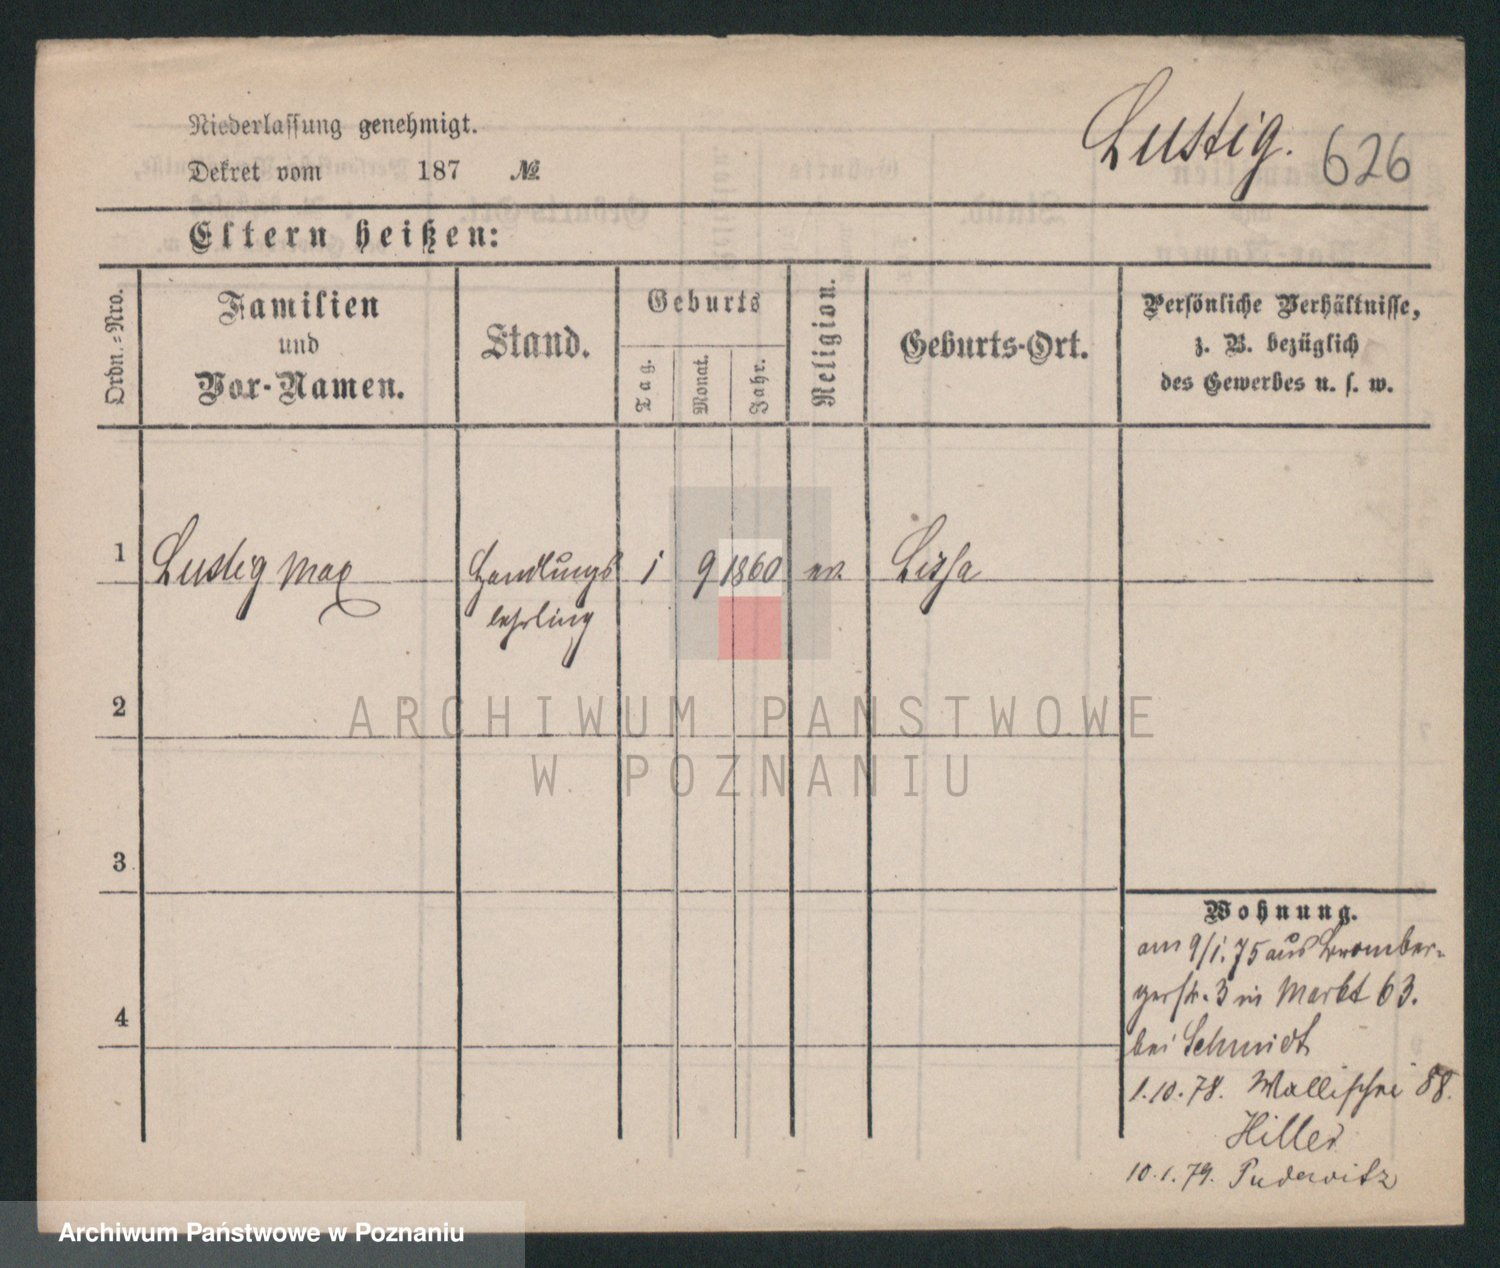 Niederlassung genehmigt.
Dekret vom 187 №
Lustig. 626
Eltern heißen:
Ordn.-Nro.
Familien
und
Vor-Namen.
Stand.
Geburts
Tag.
Monat.
Jahr.
Religion.
Geburts-Ort.
Persönliche Verhältnisse,
z. B. bezüglich
des Gewerbes u. s. w.
1 Lustig Max Handlungs 1 9 1860 ev. Lissa
lehrling
2
3
4
Wohnung.
am 9/1.75 aus Bromber-
gerstr. 3 in Markt 63.
bei Schmidt
1.10.78. Wallischei 88.
Hiller
10.1.79. Pudewitz
ARCHIWUM PAŃSTWOWE
W POZNANIU
Archiwum Państwowe w Poznaniu